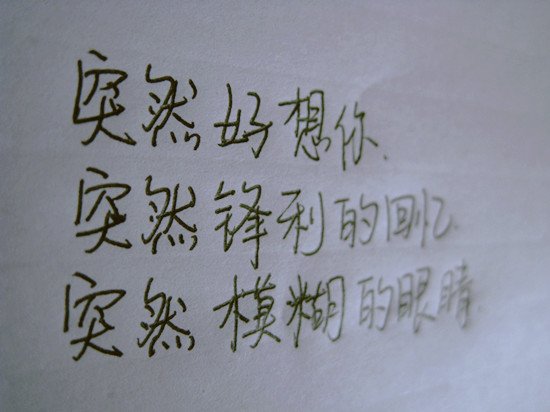 突然好想你.
突然锋利的回忆.
突然模糊的眼睛.